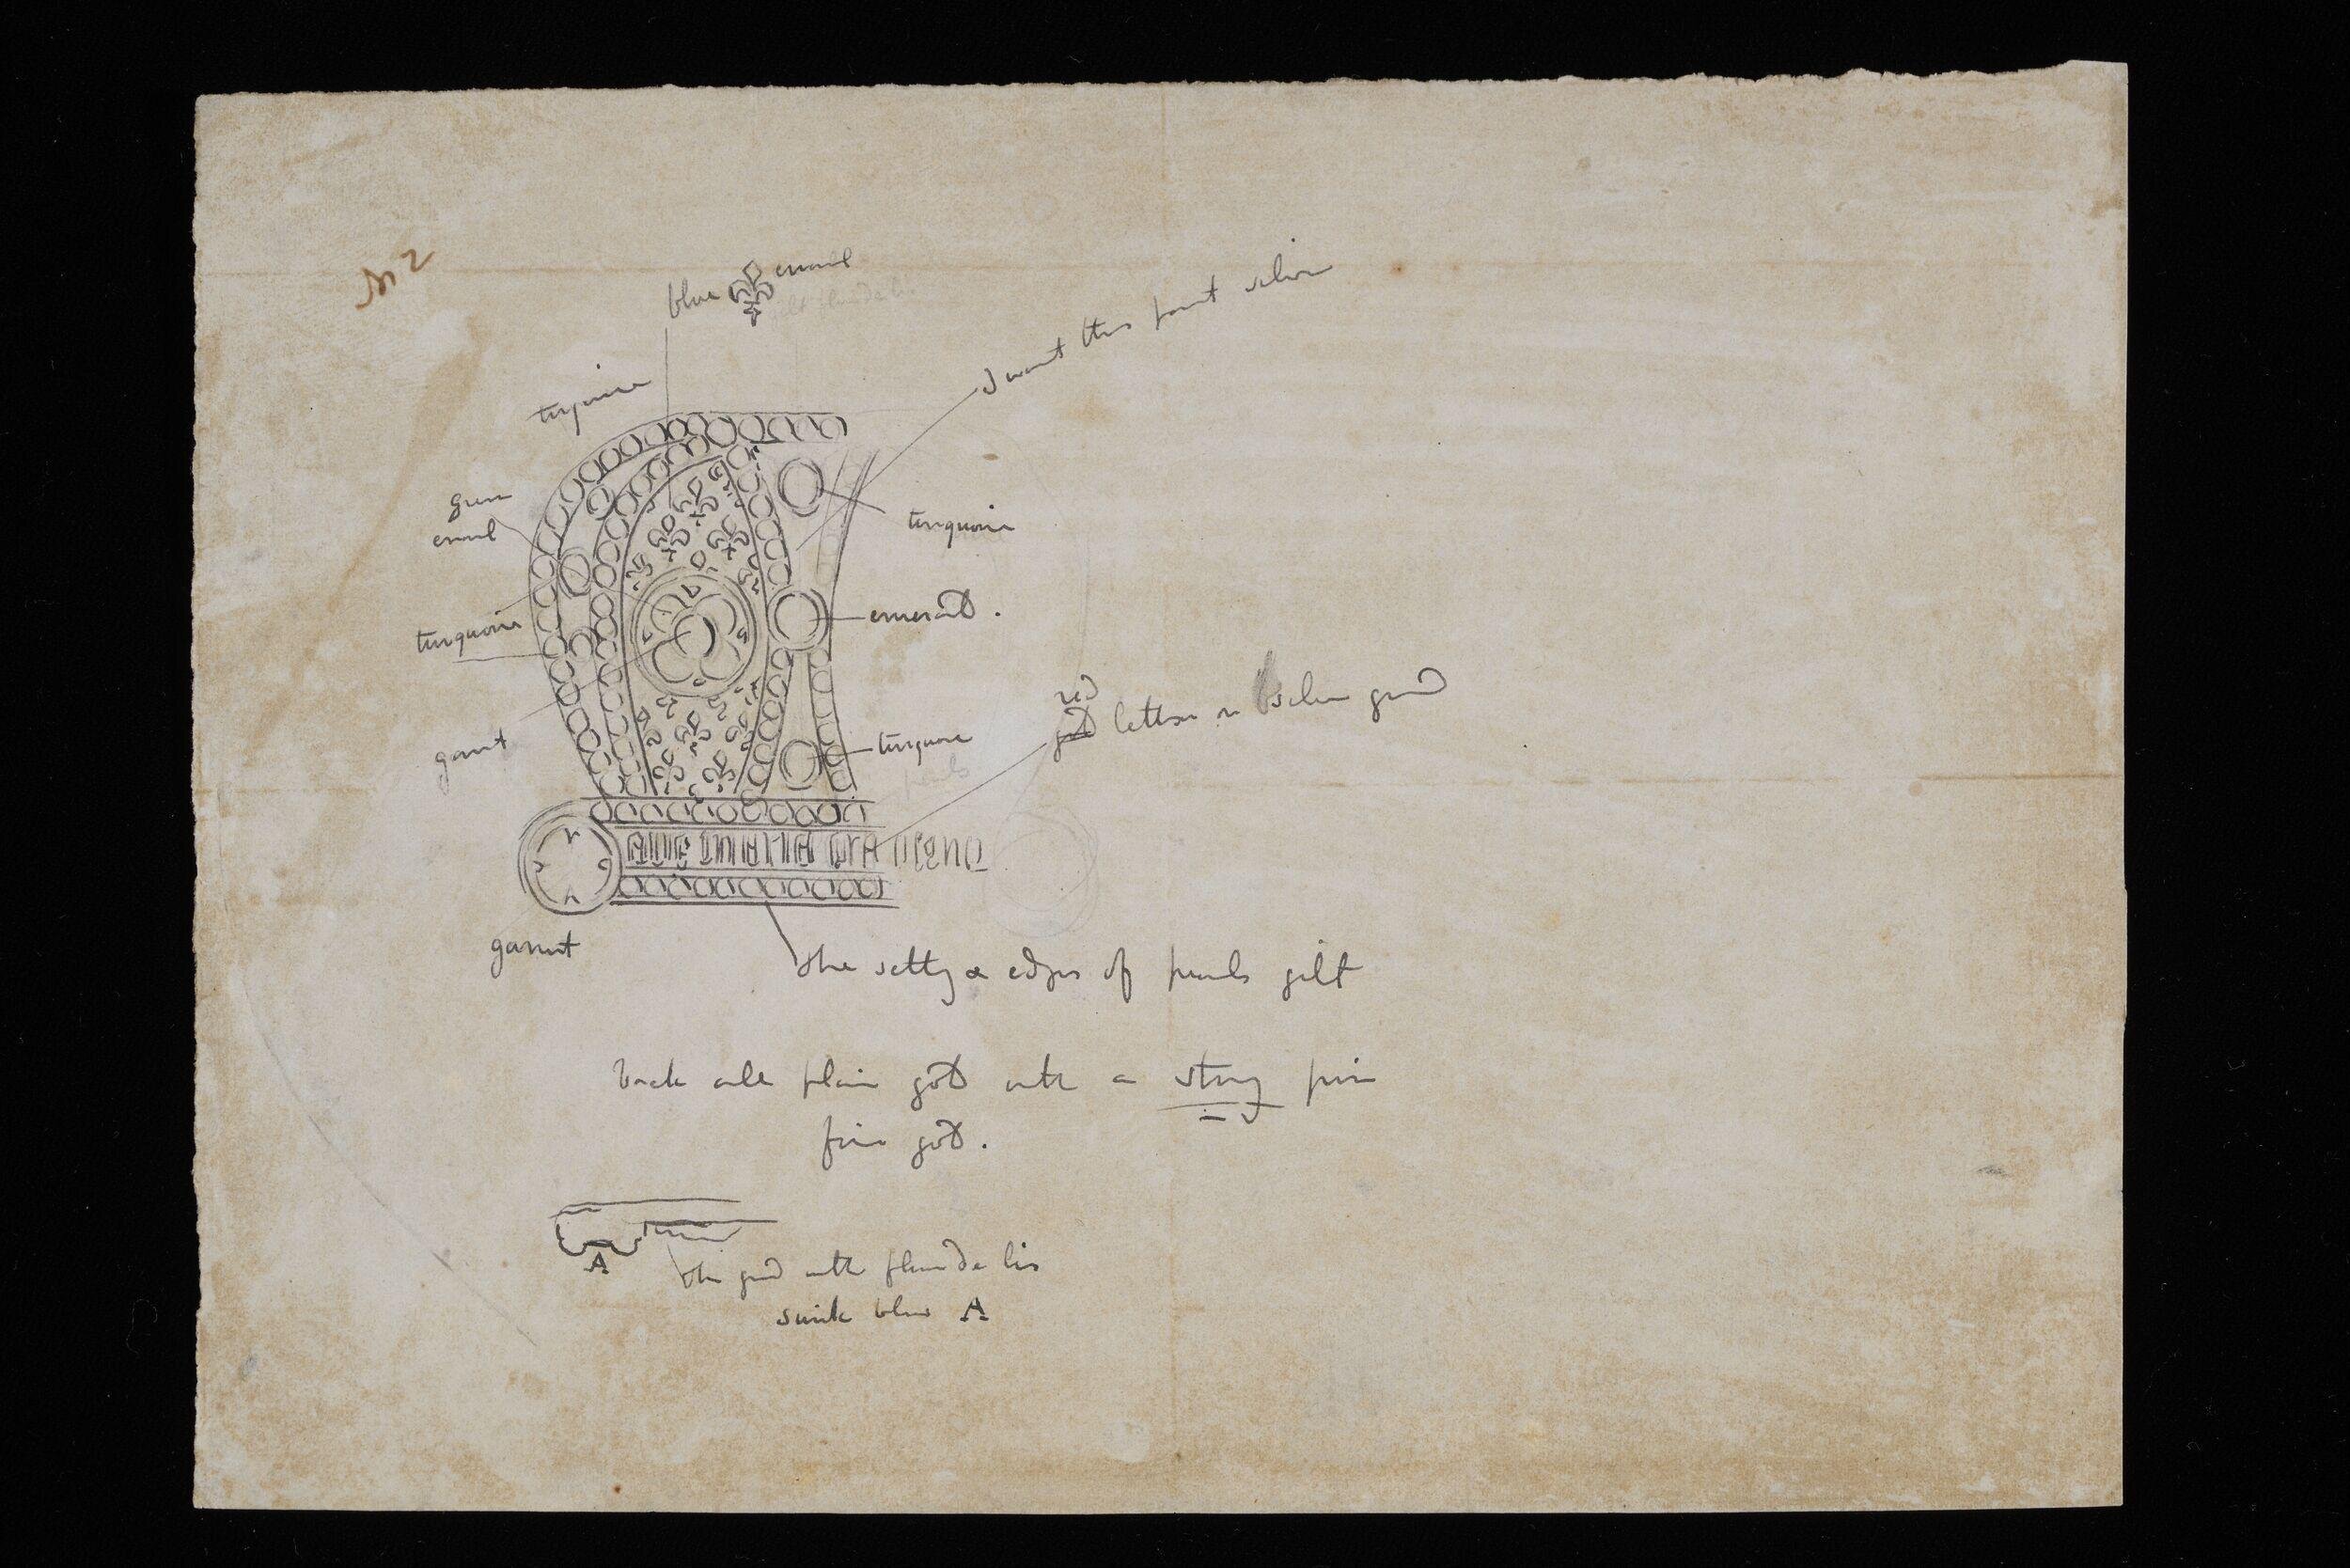 No 2
blue enamel
turquoise
I want this part silver
green
enamel
turquoise
turquoise
emerald.
garnet
red
gold letters on silver ground
turquoise
pearls
garnet
the setting & edges of pearls gilt
back all plain gold with a strong pin
fine gold.
A
the ground with fleur de lis
sunk blue A